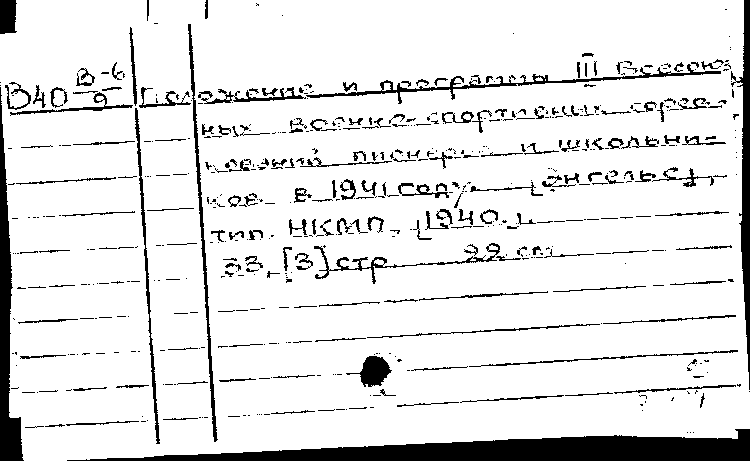 В40 В-6/9 Положение и программы III Всесоюз-
ных военно-спортивных сорев-
нований пионеров и школьни-
ков в 1941 году. [Энгельс],
тип. НКМП, [1940].
33, [3] стр. 22 см.